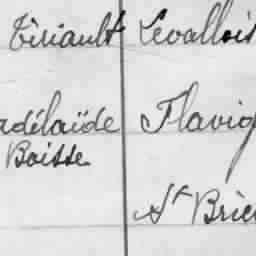 Tiriault Levallois
adélaïde Flavig
Boisse
St Brieu